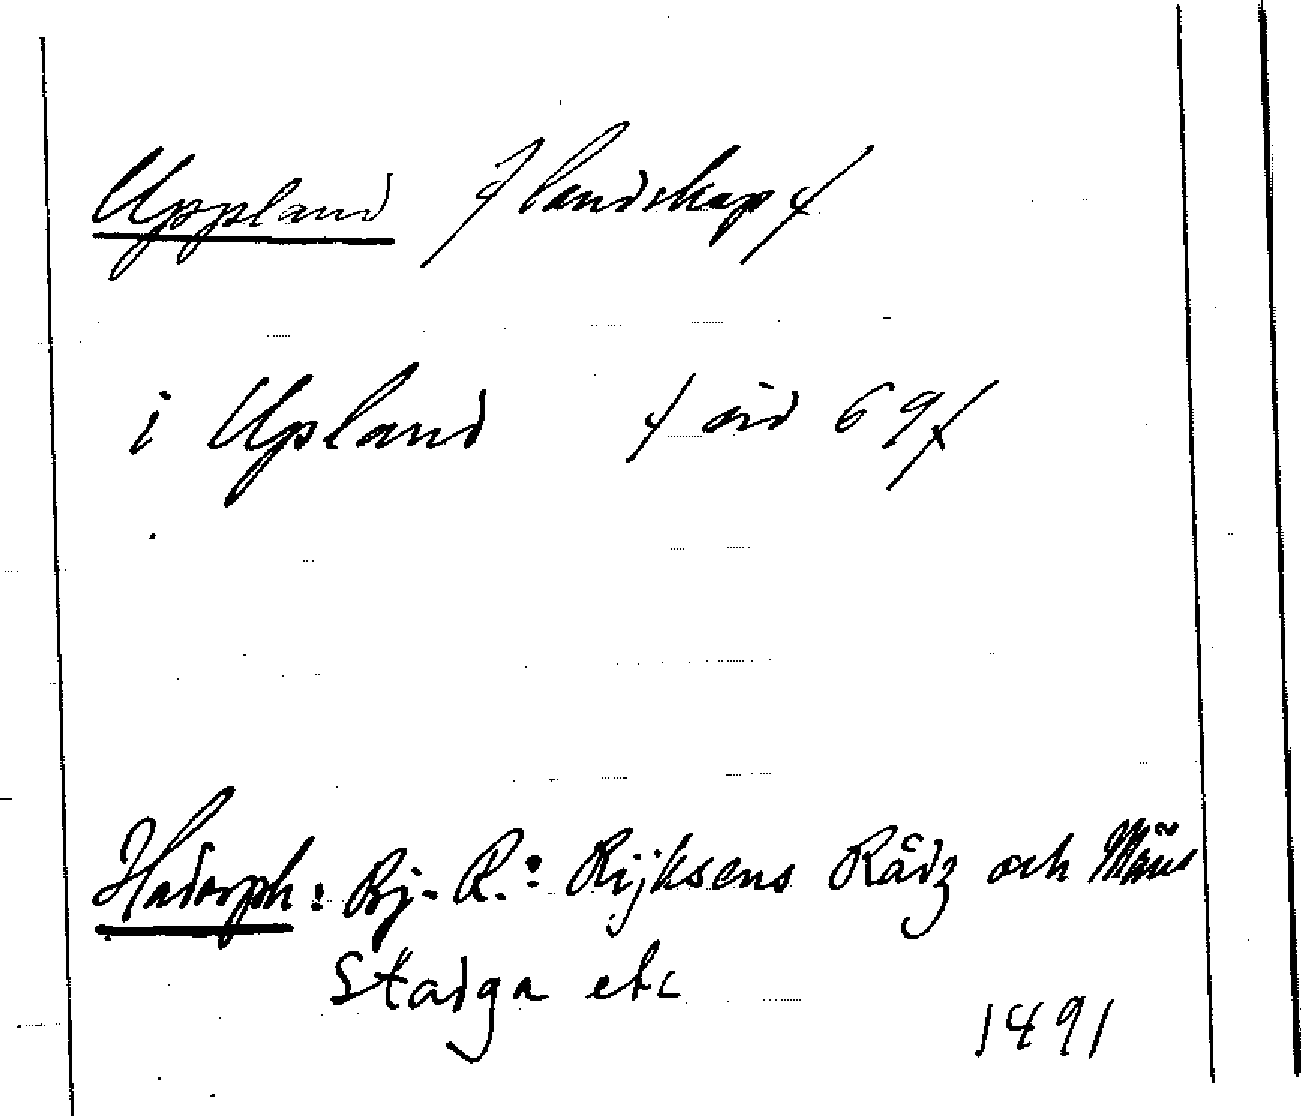 Uppland / landskap /
i Upland / sid 69 /
Hadorph: Bj. R.: Rijksens Rådz och Mäns
Stadga etc
1491